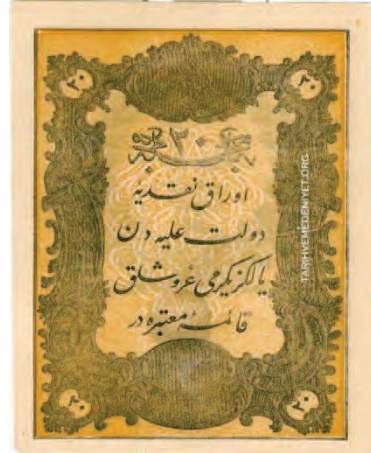 ٢٠ ٢٠
٢٠
اوراق نقدیه
دولت علیه دن
یالکز یکرمی غروشلق
قائمهٔ معتبره در
٢٠ ٢٠
TARIHVEMEDENIYET.ORG